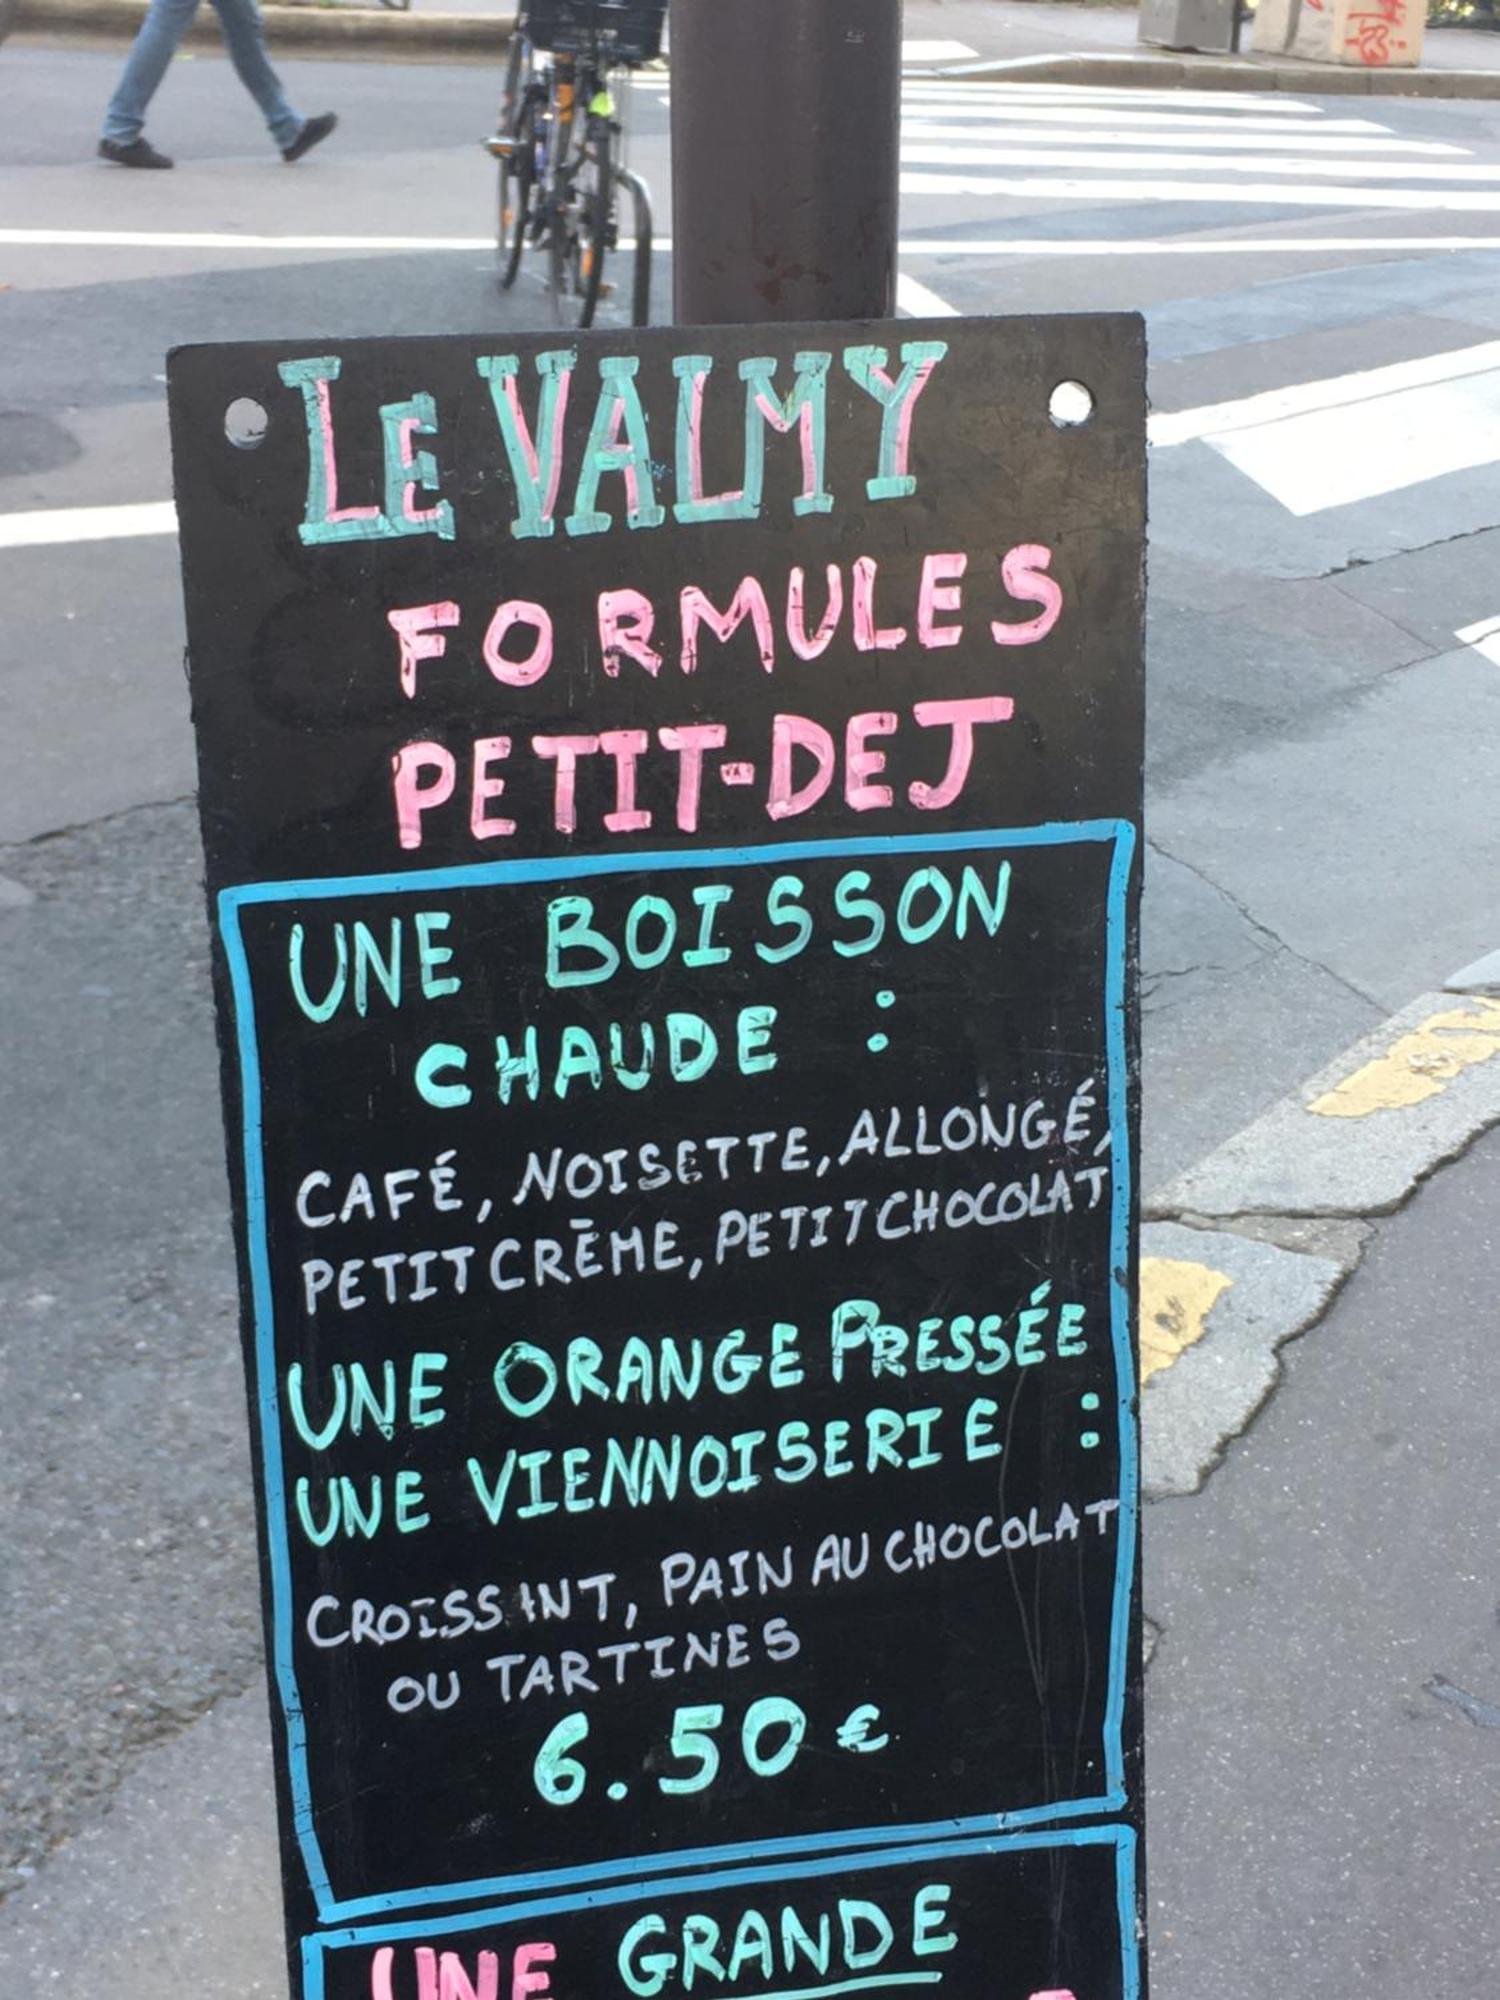 LE VALMY
FORMULES
PETIT-DEJ
UNE BOISSON
CHAUDE :
CAFÉ, NOISETTE, ALLONGÉ,
PETIT CRĒME, PETIT CHOCOLAT
UNE ORANGE PRESSÉE
UNE VIENNOISERIE :
CROISSANT, PAIN AU CHOCOLAT
OU TARTINES
6.50 €
UNE GRANDE